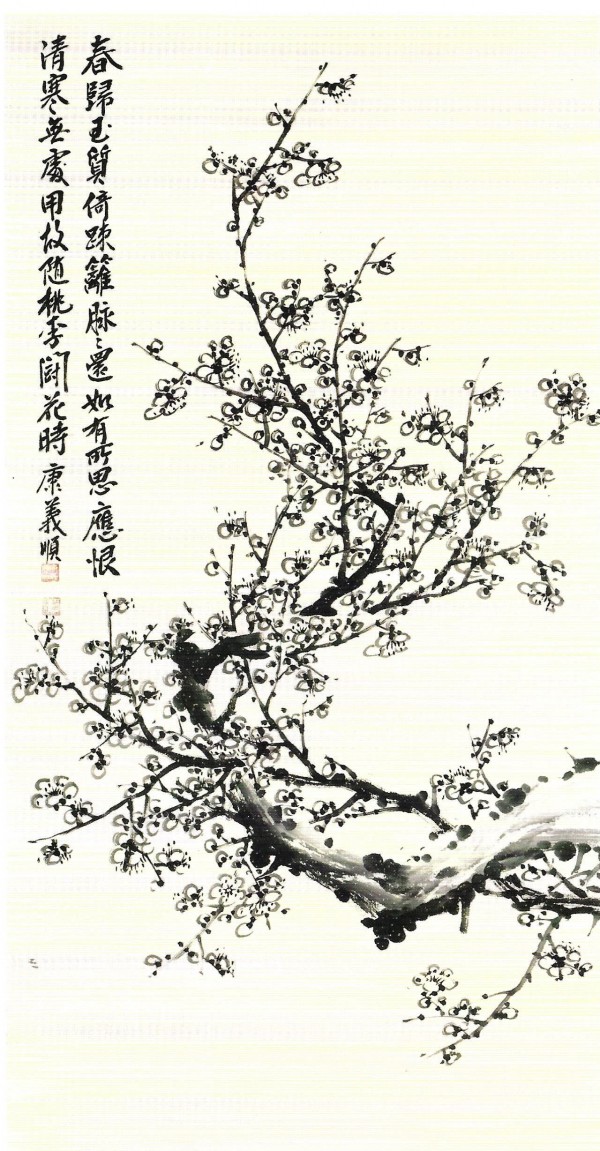 春歸玉質倚疎籬脉〻還如有所思應恨
清寒無處用故随桃李鬪花時 康義順